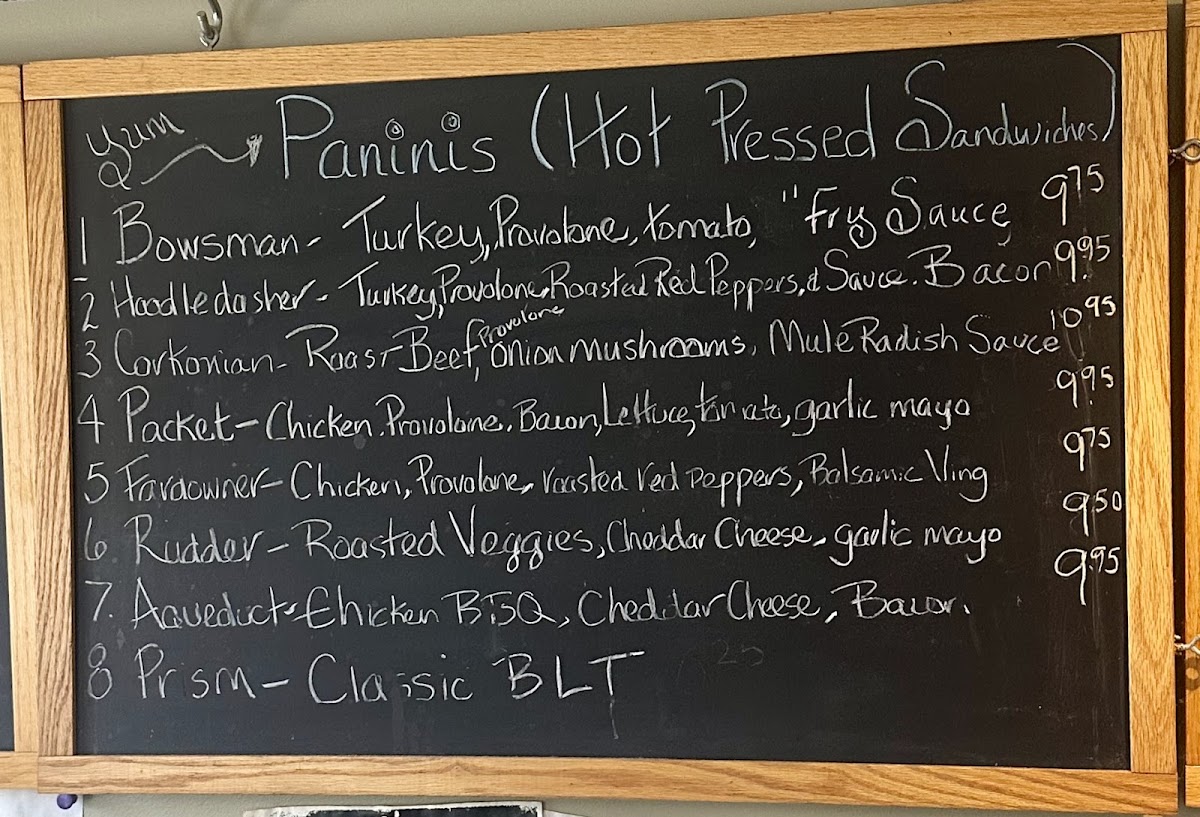 Yum Paninis (Hot Pressed Sandwiches)
1 Bowsman - Turkey, Provolone, tomato, "Fry Sauce 9.75
2 Hoodledasher - Turkey, Provolone, Roasted Red Peppers, & Sauce. Bacon 9.95
3 Corkonian - Roast Beef, Provolone, onion mushrooms, Mule Radish Sauce 10.95
4 Packet - Chicken, Provolone, Bacon, Lettuce, tomato, garlic mayo 9.95
5 Fardowner - Chicken, Provolone, roasted red peppers, Balsamic Ving 9.75
6 Rudder - Roasted Veggies, Cheddar Cheese, garlic mayo 9.50
7. Aqueduct - Chicken BBQ, Cheddar Cheese, Bacon. 9.95
8 Prism - Classic BLT